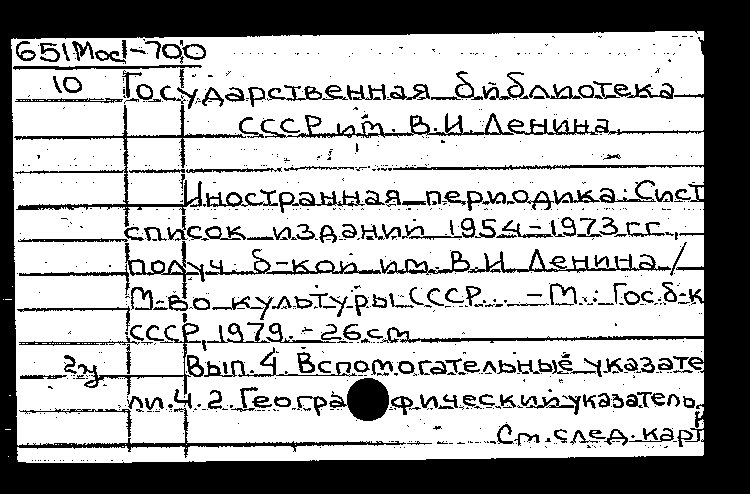 651Mos-700
10 Государственная библиотека
СССР им. В.И. Ленина.
Иностранная периодика: Сист
список изданий 1954-1973 гг.,
получ. б-кой им. В.И Ленина /
М-во культуры СССР... - М.: Гос.б-к
СССР, 1979. - 26 см
2з Вып. 4. Вспомогательные указате
ли. Ч. 2. Географический указатель.
См. след. карт